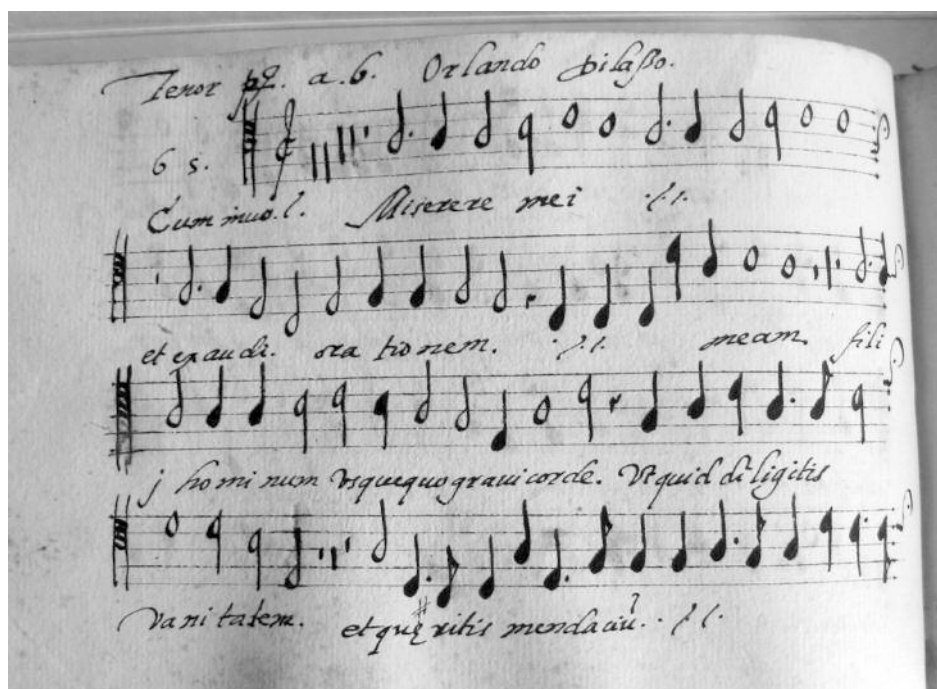 Tenor a. 6. Orlando dilaßo.
6 s.
Cum inuo. l. Miserere mei ·/.·
et exaudi. ora tionem. ·/.· meam. fili
j ho mi num vsquequo graui corde. Vt quid di ligitis
Va ni tatem. et quę ritis mendaciũ. ·/.·